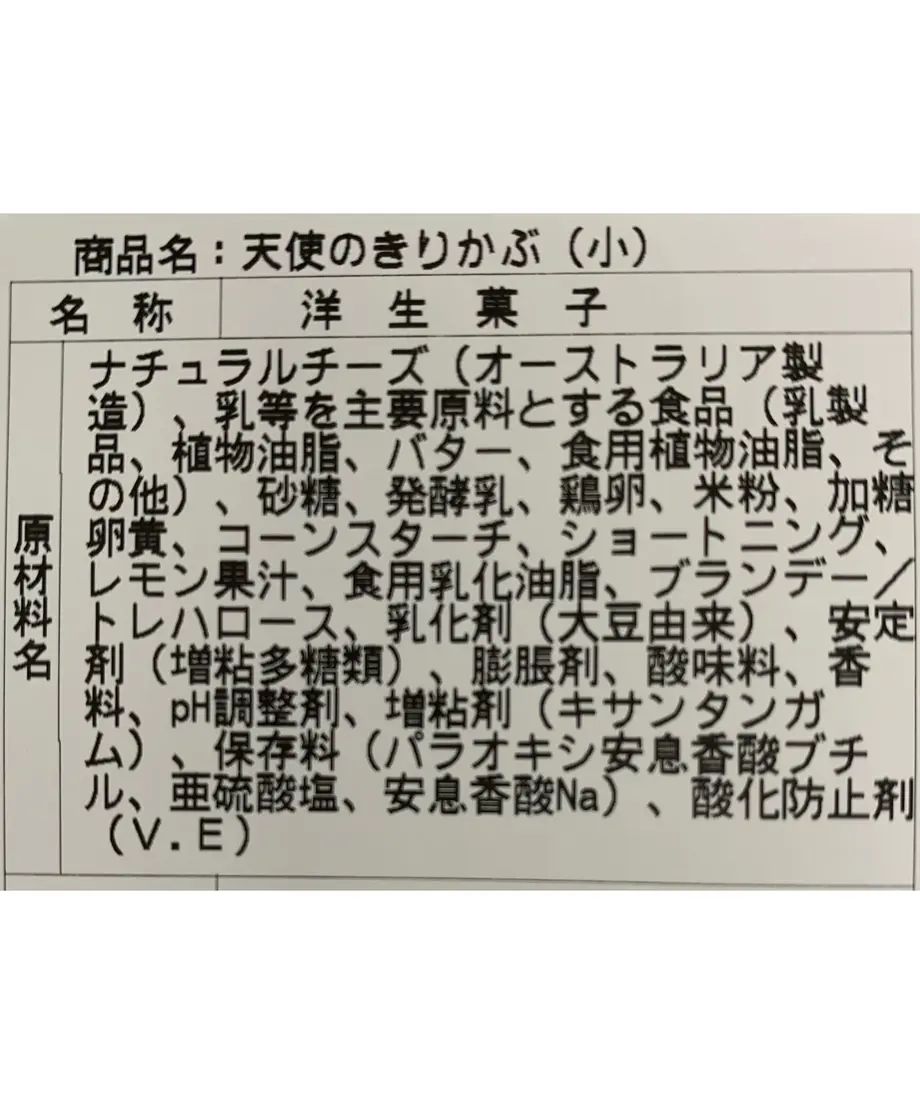 商品名：天使のきりかぶ（小）
名称 洋生菓子
原材料名
ナチュラルチーズ（オーストラリア製
造）、乳等を主要原料とする食品（乳製
品、植物油脂、バター、食用植物油脂、そ
の他）、砂糖、発酵乳、鶏卵、米粉、加糖
卵黄、コーンスターチ、ショートニング、
レモン果汁、食用乳化油脂、ブランデー／
トレハロース、乳化剤（大豆由来）、安定
剤（増粘多糖類）、膨脹剤、酸味料、香
料、pH調整剤、増粘剤（キサンタンガ
ム）、保存料（パラオキシ安息香酸ブチ
ル、亜硫酸塩、安息香酸Na）、酸化防止剤
（V．E）